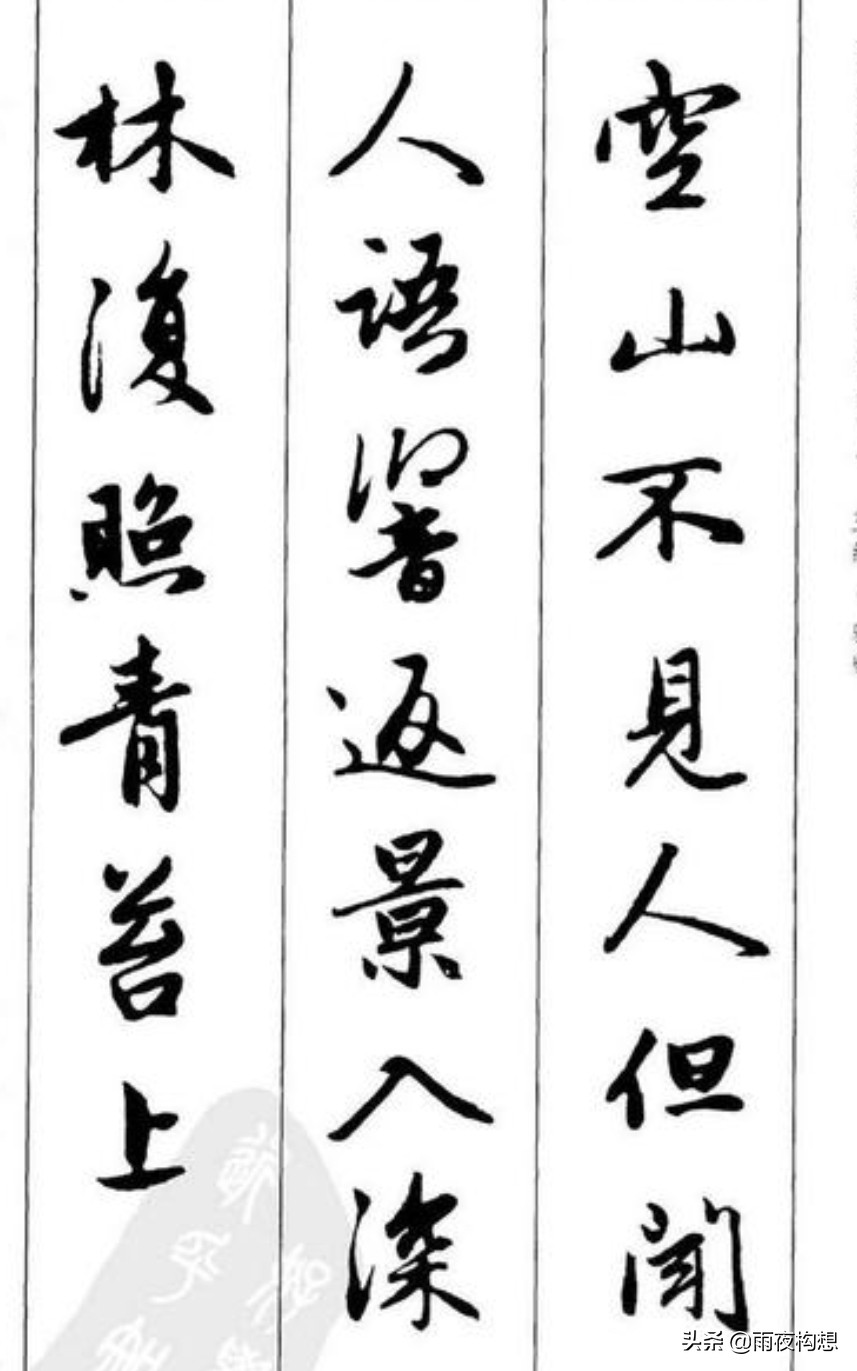 空山不見人但聞
人語響返景入深
林復照青苔上
头条 @雨夜构想